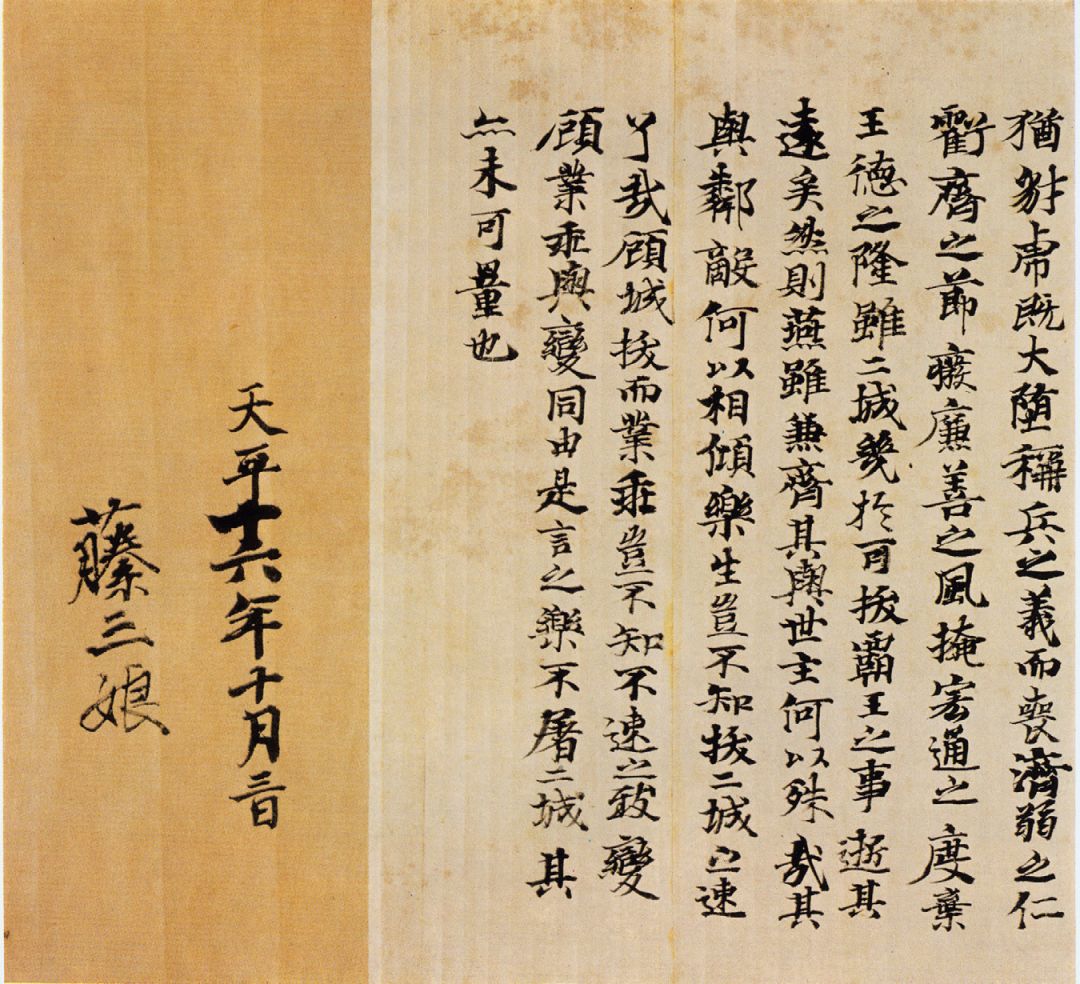 猶豺虎既大墮稱兵之義而喪濟弱之仁
虧齊之節癈廉善之風掩宏通之度棄
王徳之隆雖二城幾於可拔霸王之事逝其
遠矣然則燕雖兼齊其與世主何以殊哉其
與鄰敵何以相傾樂生豈不知拔二城之速
了哉顧城拔而業乖豈不知不速之致變
顧業乖與變同由是言之樂不屠二城其
亦未可量也
天平十六年十月三日
藤三娘